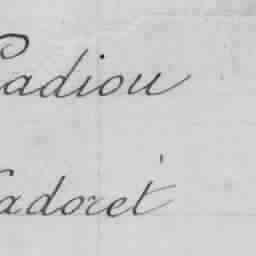 Cadiou
Cadoret